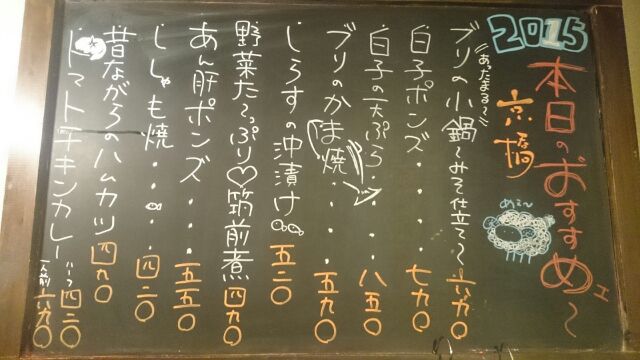 2015
本日のおすすめェ〜
京橋
めェ〜
あったまる〜
ブリの小鍋〜みそ仕立て〜 六九〇
白子ポンズ・・・・ 七九〇
白子の天ぷら・・・・ 八五〇
ブリのかま焼・・・・ 五九〇
しらすの沖漬け 五二〇
野菜たっぷり♡筑前煮 四九〇
あん肝ポンズ・・・ 五五〇
ししゃも焼・・・・ 四二〇
昔ながらのハムカツ 四九〇
トマトチキンカレー ハーフ 四二〇
一人前 六九〇